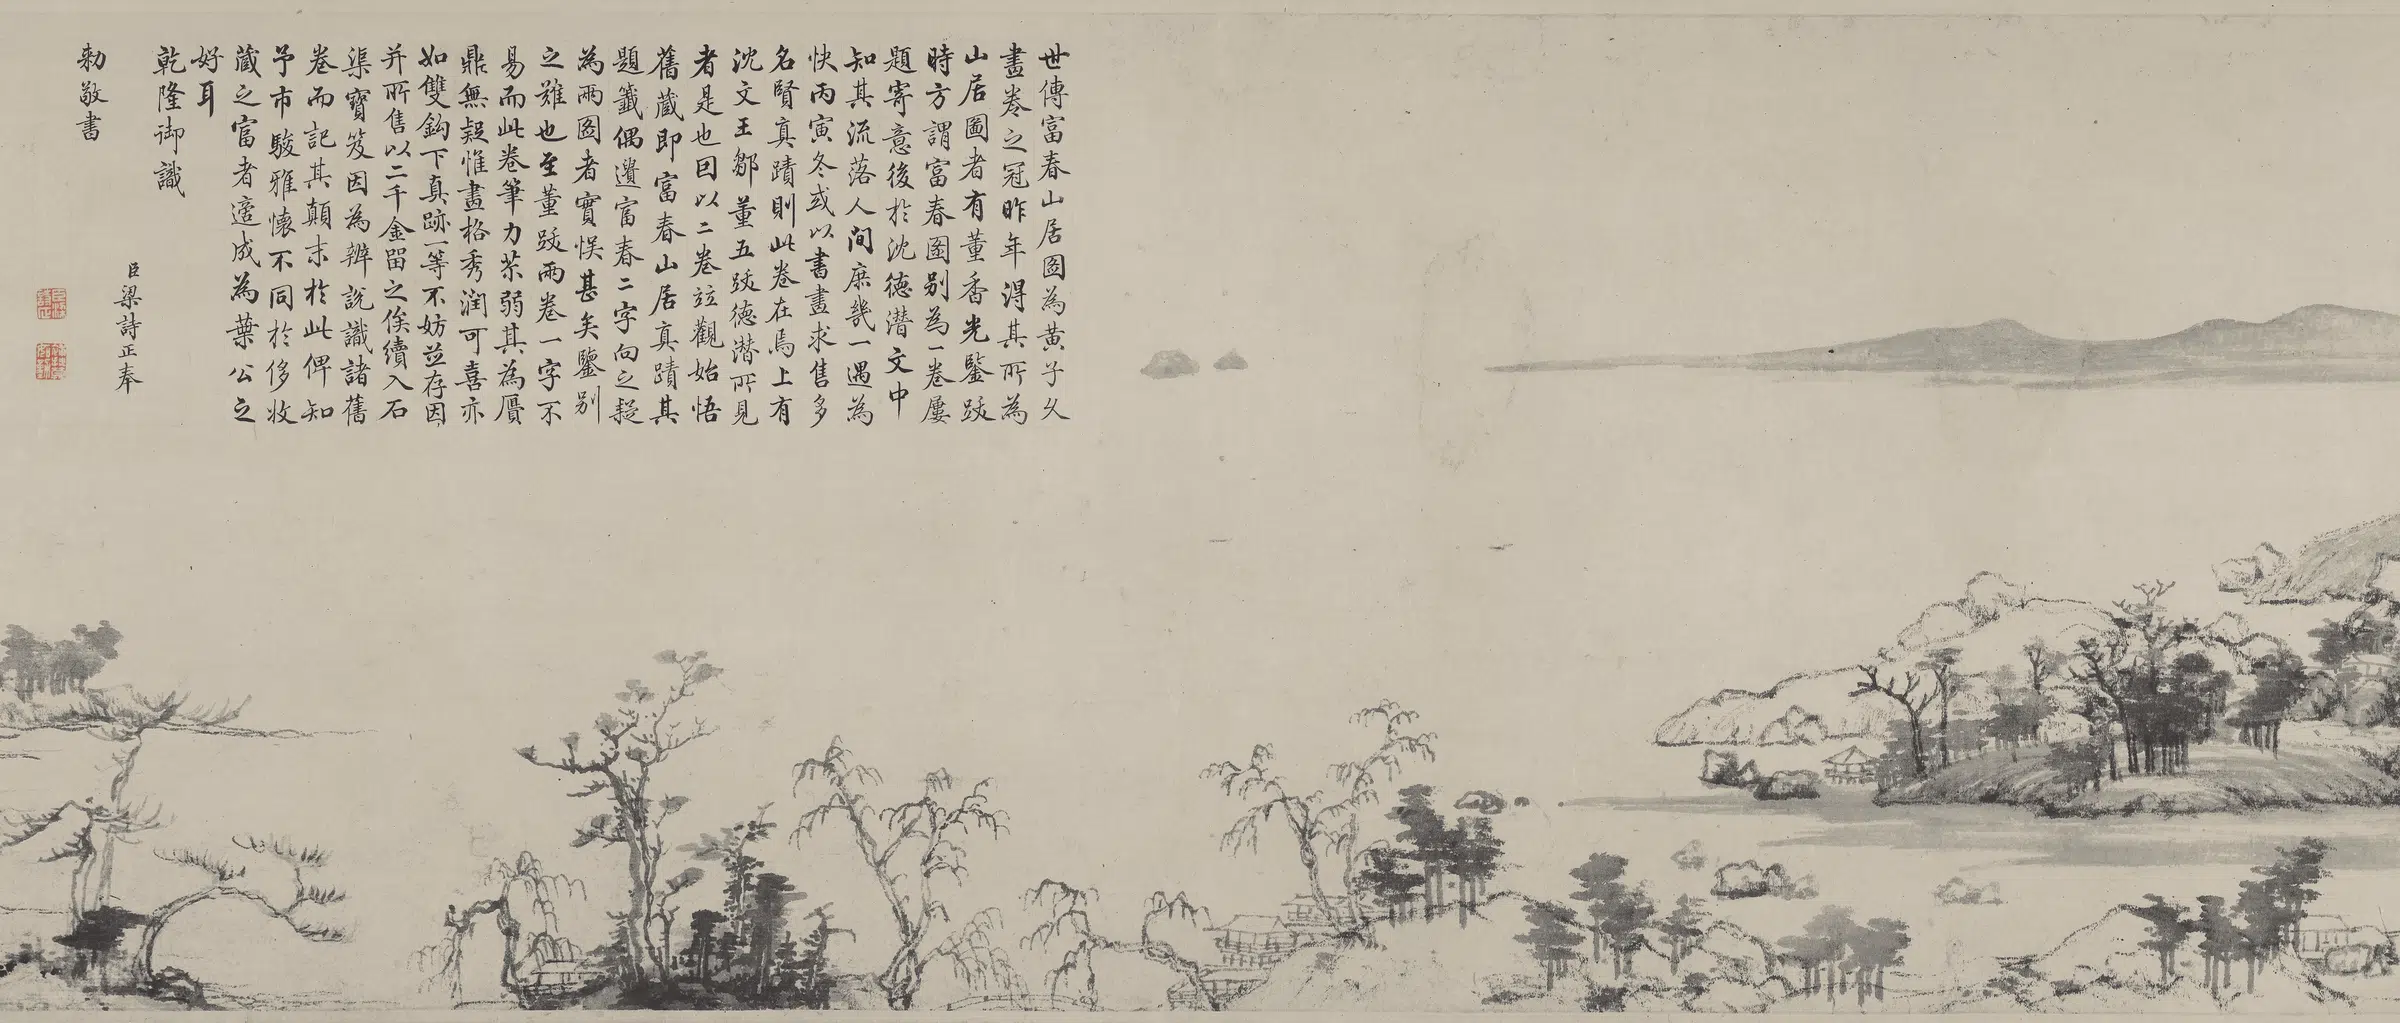 世傳富春山居圖為黃子久
畫卷之冠昨年得其所為
山居圖者有董香光鑒跋
時方謂富春圖別為一卷屢
題寄意後於沈德潛文中
知其流落人間庶幾一遇為
快丙寅冬或以書畫求售多
名賢真蹟則此卷在焉上有
沈文王鄒董五跋德潛所見
者是也因以二卷竝觀始悟
舊藏即富春山居真蹟其
題籤偶遺富春二字向之疑
為兩圖者實悮甚矣鑒別
之難也至董跋兩卷一字不
易而此卷筆力苶弱其為贗
鼎無疑惟畫格秀潤可喜亦
如雙鈎下真跡一等不妨並存因
并所售以二千金留之俟續入石
渠寶笈因為辨說識諸舊
卷而記其顛末於此俾知
予市駿雅懷不同於侈收
藏之富者適成為葉公之
好耳
乾隆御識
臣梁詩正奉
勅敬書